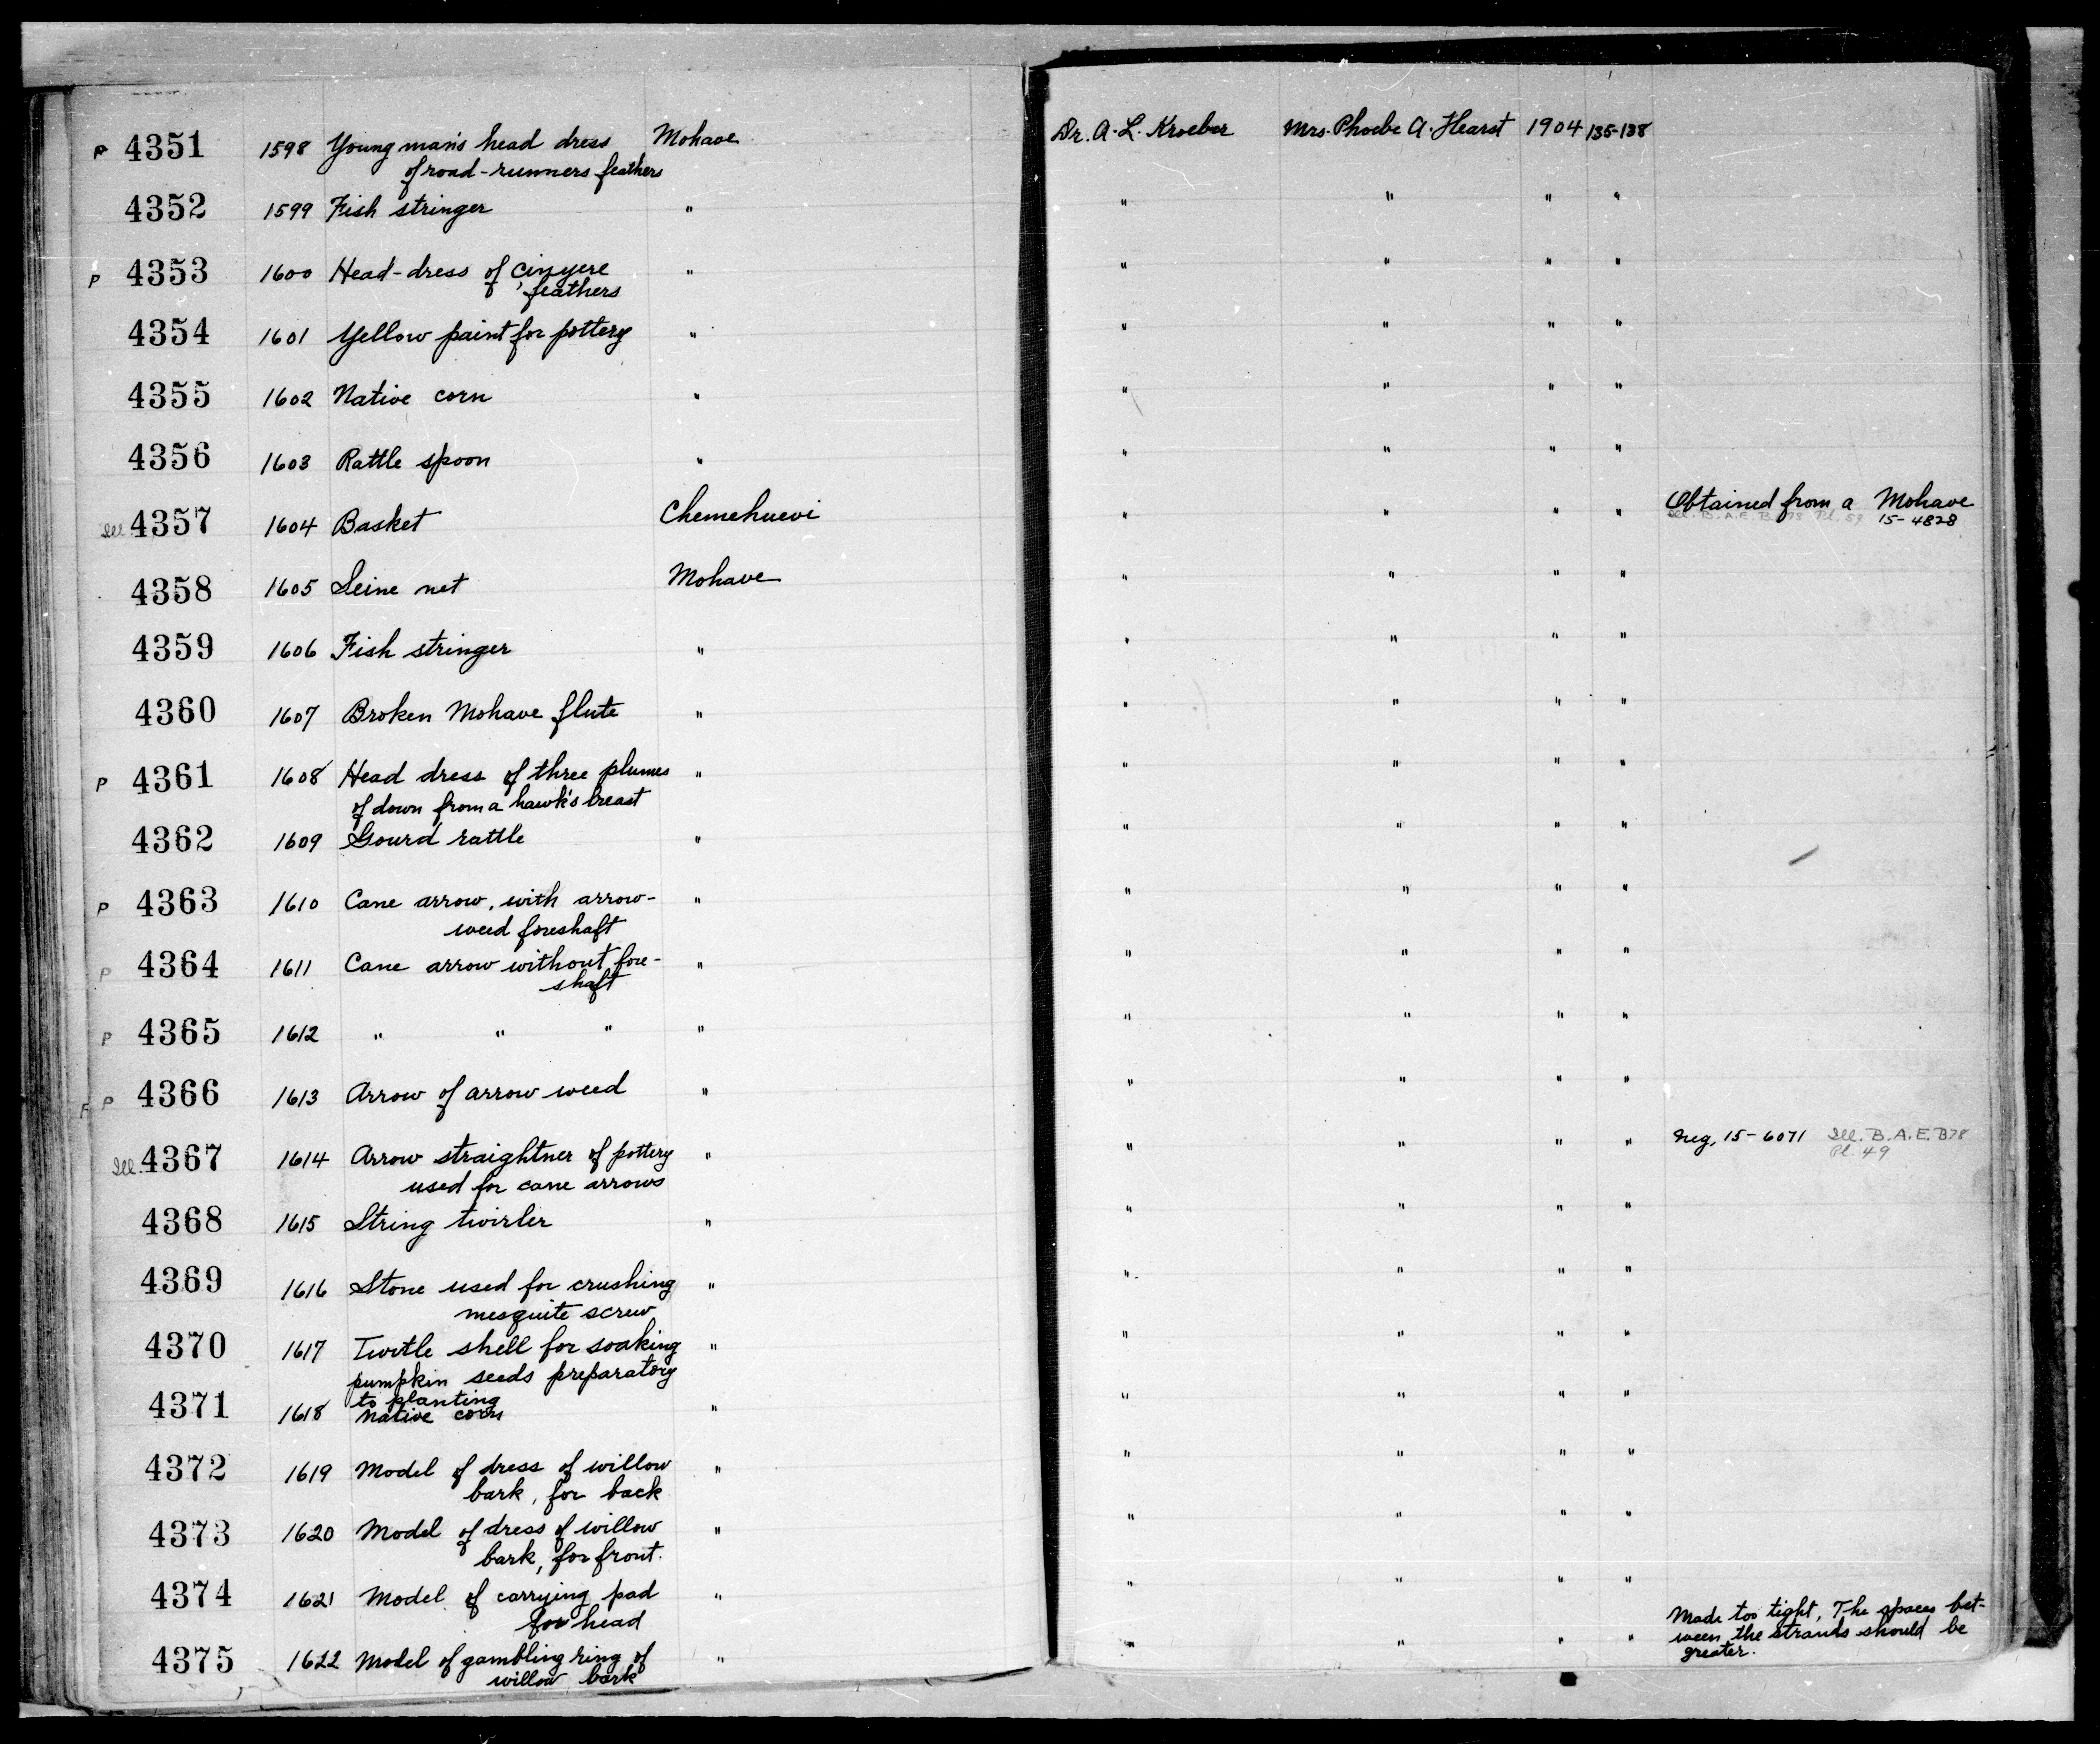 P 4351 1598 Young man's head dress Mohave Dr. A. L. Kroeber Mrs. Phoebe A. Hearst 1904 135-138
of road-runners feathers
4352 1599 Fish stringer " " " " "
P 4353 1600 Head-dress of " " " " "
feathers
4354 1601 Yellow paint for pottery " " " " "
4355 1602 Native corn " " " " "
4356 1603 Rattle spoon " " " " "
Ill. 4357 1604 Basket Chemehuevi " " " " Obtained from a Mohave
Ill. B.A.E. B78 Pl. 59 15-4828
4358 1605 Seine net Mohave " " " "
4359 1606 Fish stringer " " " " "
4360 1607 Broken Mohave flute " " " " "
P 4361 1608 Head dress of three plumes " " " " "
of down from a hawk's breast
4362 1609 Gourd rattle " " " " "
P 4363 1610 Cane arrow, with arrow- " " " " "
weed foreshaft
P 4364 1611 Cane arrow without fore- " " " " "
shaft
P 4365 1612 " " " " " " " "
F P 4366 1613 Arrow of arrow weed " " " " "
Ill. 4367 1614 Arrow straightner of pottery " " " " " Neg, 15-6071 Ill. B.A.E. B78
used for cane arrows Pl. 49
4368 1615 String twirler " " " " "
4369 1616 Stone used for crushing " " " " "
mesquite screw
4370 1617 Turtle shell for soaking " " " " "
pumpkin seeds preparatory
to planting
4371 1618 Native corn " " " " "
4372 1619 Model of dress of willow " " " " "
bark, for back
4373 1620 Model of dress of willow " " " " "
bark, for front.
4374 1621 Model of carrying pad " " " " "
for head
4375 1622 Model of gambling ring of " " " " " Made too tight, The spaces bet-
willow bark ween the strands should be
greater.